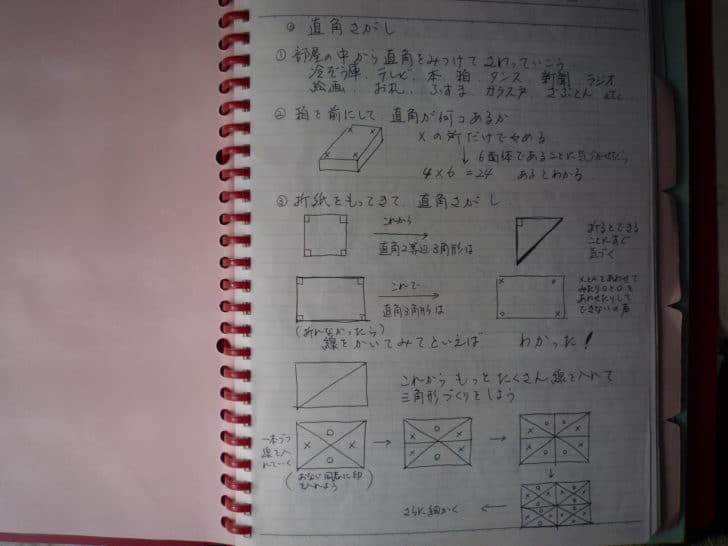 ○ 直角さがし
① 部屋の中から直角をみつけてさわっていこう
冷ぞう庫、テレビ、本、箱、タンス、新聞、ラジオ
絵画、お札、ふすま、ガラス戸、ざぶとん etc.
② 箱を前にして 直角が何コあるか
×の所だけでやめる
↓ 6面体であることに気づかせたら
4×6=24 あるとわかる
③ 折紙をもってきて 直角さがし
これから
直角2等辺3角形は
折るとできる
ことにすぐ
気づく
これで
直角3角形は
×と×をあわせて
みたり○と○を
あわせたりして
できないの声
(折れなかったら)
線をかいてみてといえば わかった!
これから もっとたくさん線を入れて
三角形づくりをしよう
一本づつ
線を入
れていく
(おなじ図形に印
を入れよう)
さらに細かく